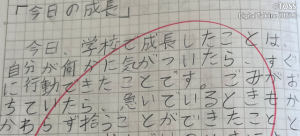 「今日の成長」
今日、学校で成長したことは、
自分が何かに気がついたら、すぐ
に行動できたことです。ごみがお
ちていたら、急いでいるときもか
かわらず拾うことができたこと
©TOSS